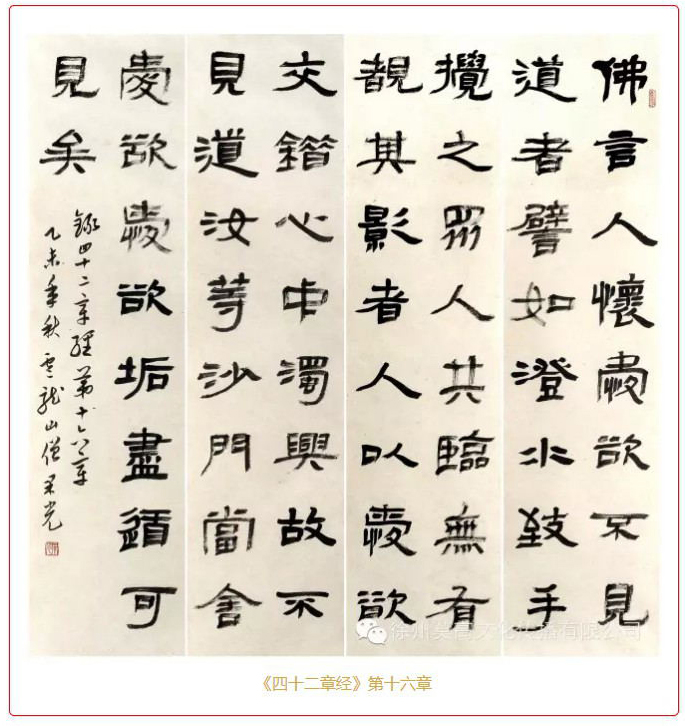 佛言人懷愛欲不見
道者譬如澄水致手
攪之眾人共臨無有
覩其影者人以愛欲
交錯心中濁興故不
見道汝等沙門當舍
愛欲愛欲垢盡道可
見矣
錄四十二章經第十六章
乙未季秋雲龍山僧光
徐州文化传播有限公司
《四十二章经》第十六章